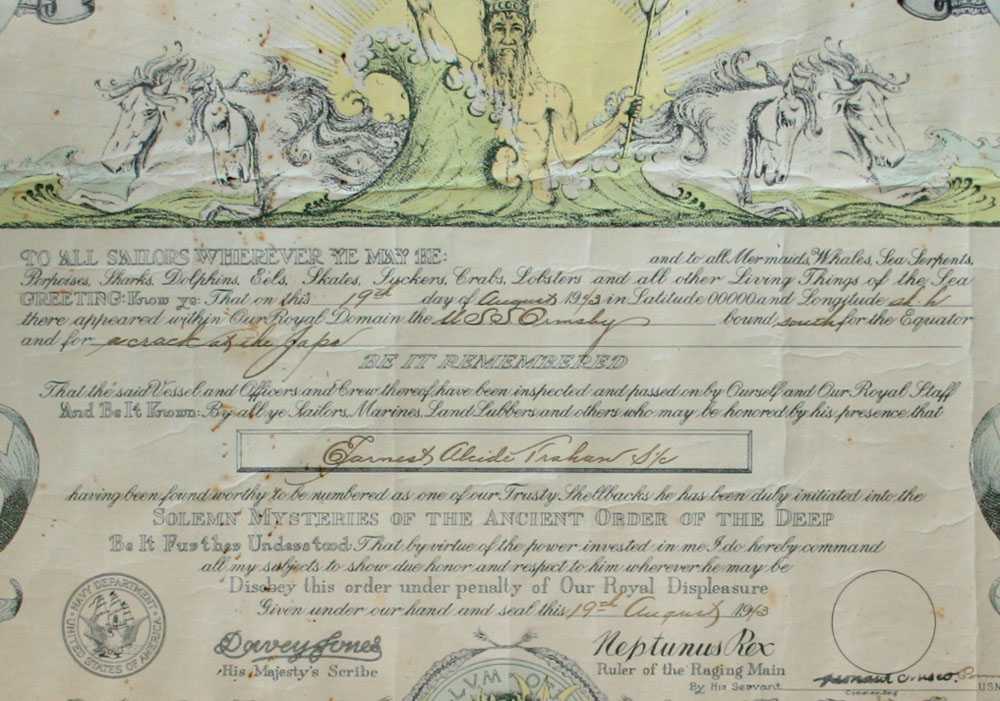 TO ALL SAILORS WHEREVER YE MAY BE: and to all Mermaids, Whales, Sea Serpents,
Porpoises, Sharks, Dolphins, Eels, Skates, Suckers, Crabs, Lobsters and all other Living Things of the Sea
GREETING: Know ye: That on this 19th day of August 1943 in Latitude 00000 and Longitude
there appeared within Our Royal Domain the USS Ormsby bound south for the Equator
and for a crack at the Japs
BE IT REMEMBERED
That the said Vessel and Officers and Crew thereof have been inspected and passed on by Ourself and Our Royal Staff
And Be It Known: By all ye Sailors, Marines, Land Lubbers and others who may be honored by his presence that
Earnest Alcide Trahan S/c
having been found worthy to be numbered as one of our Trusty Shellbacks he has been duly initiated into the
SOLEMN MYSTERIES OF THE ANCIENT ORDER OF THE DEEP
Be It Further Understood: That by virtue of the power invested in me I do hereby command
all my subjects to show due honor and respect to him wherever he may be
Disobey this order under penalty of Our Royal Displeasure
Given under our hand and seal this 19th August 1943
NAVY DEPARTMENT
UNITED STATES OF AMERICA
Davey Jones
His Majesty's Scribe
Neptunus Rex
Ruler of the Raging Main
By His Servant
USN
Commanding